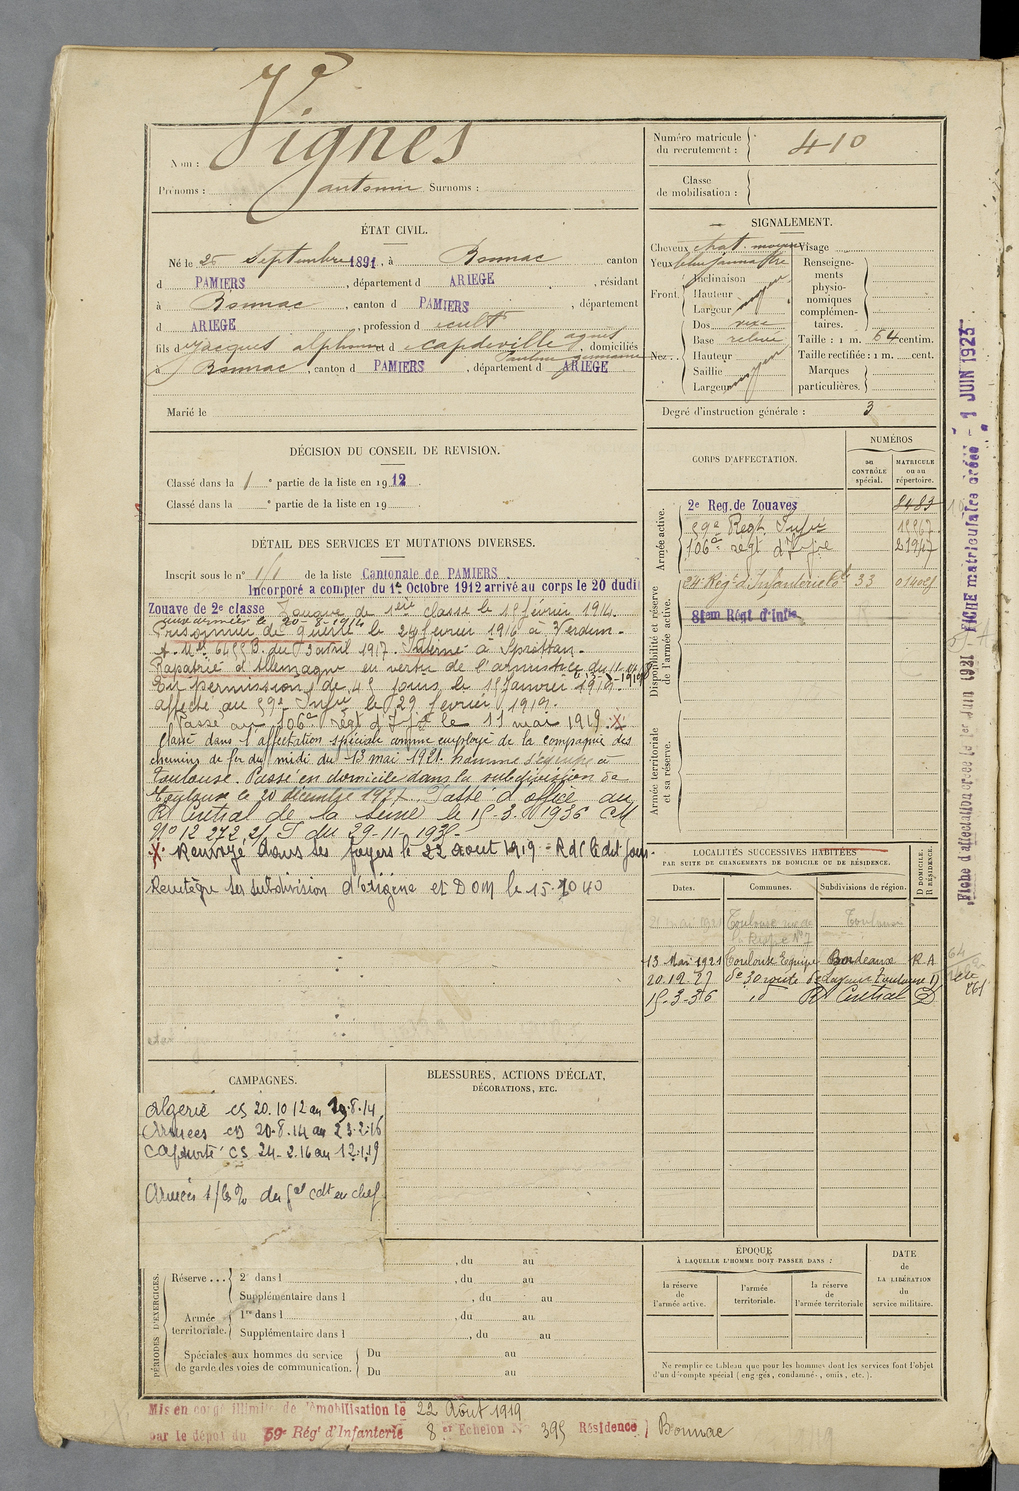 Nom : Vignes
Prénoms : antonin Surnoms :
Numéro matricule du recrutement : 410
Classe de mobilisation :
ÉTAT CIVIL.
Né le septembre 1891, à Bonnac canton
d PAMIERS, département d ARIEGE, résidant
à Bonnac, canton d PAMIERS, département
d ARIEGE, profession d cult
fils d Jacques alphonse et d capdeville agnès, domiciliés
à Bonnac, canton d PAMIERS, département d ARIEGE
Marié le
SIGNALEMENT.
Cheveux chat. moyen Visage
Yeux jaunâtre
Front. Inclinaison
Hauteur moyen
Largeur
Nez. Dos
Base relevé
Hauteur
Saillie moyen
Largeur
Renseignements physionomiques complémentaires.
Taille : 1 m. 64 centim.
Taille rectifiée : 1 m. cent.
Marques particulières.
Degré d'instruction générale : 3
DÉCISION DU CONSEIL DE REVISION.
Classé dans la 1e partie de la liste en 1912.
Classé dans la e partie de la liste en 19
DÉTAIL DES SERVICES ET MUTATIONS DIVERSES.
Inscrit sous le n° de la liste Cantonale de PAMIERS
Incorporé a compter du 1er Octobre 1912 arrivé au corps le 20 dudit
Zouave de 2e classe Zouave de 1ère classe le 15 février 1914.
aux armées le 20-8-1914
Prisonnier de guerre le 24 février 1916 à Verdun.
du 3 avril 1917. Interné à Sprottau.
Rapatrié d'Allemagne en vertu de l'armistice du 11-11-18
En permission de 45 jours le 15 Janvier 1919.
affecté au 59e Infie le 29 février 1919.
Passé au 106e régt d'Ifie le 11 mai 1919. X
Classé dans l'affectation spéciale comme employé de la compagnie des
chemins de fer du midi du 13 mai 1921. homme d'équipe à
Toulouse. Passé en domicile dans la subdivision de
Toulouse le 20 décembre 1927. Passé d'office au
Rt Central de la Seine le 15-3-1936 CM
N° 12 272 2/ T du 29-11-1935
X Renvoyé dans ses foyers le 22 aout 1919 - R d C le dit jour.
Réintègre sa subdivision d'origine et DOM le 15.10 40
CORPS D'AFFECTATION.
NUMÉROS
au CONTRÔLE spécial.
MATRICULE ou au répertoire.
Armée active.
2e Reg. de Zouaves 8483
59e Regt Infie
106e régt d'Ifie 21947
Disponibilité et réserve de l'armée active.
81em Régt d'Infie
Armée territoriale et sa réserve.
LOCALITÉS SUCCESSIVES HABITÉES
PAR SUITE DE CHANGEMENTS DE DOMICILE OU DE RÉSIDENCE.
Dates. Communes. Subdivisions de région. D DOMICILE. R RÉSIDENCE.
21 mai 1921 Toulouse rue de Toulouse
N° 7
13 Mai 1921 Toulouse Equipe Bordeaux R A
20.12.27 de Toulouse D
15-3-36 id Rt Central D
CAMPAGNES.
Algérie CS 20.10 12 au 19.8.14
Armées CD 20.8.14 au 23.2.16
Captivité CS 24-2.16 au 12.1.19
BLESSURES, ACTIONS D'ÉCLAT, DÉCORATIONS, ETC.
PÉRIODES D'EXERCICES.
, du au
Réserve 2e dans l , du au
Supplémentaire dans l , du au
Armée territoriale. 1re dans l , du au
Supplémentaire dans l , du au
Spéciales aux hommes du service de garde des voies de communication. Du au
Du au
ÉPOQUE
À LAQUELLE L'HOMME DOIT PASSER DANS :
la réserve de l'armée active.
l'armée territoriale.
la réserve de l'armée territoriale
DATE DE LA LIBÉRATION du service militaire.
Ne remplir ce tableau que pour les hommes dont les services font l'objet
d'un décompte spécial (engagés, condamnés, omis, etc.).
Mis en congé illimité de démobilisation le 22 Août 1919
par le dépôt du 59e Régt d'Infanterie 8e Echelon N° 395 Résidence Bonnac
FICHE matriculaire créée - 1 JUIN 1923
Fiche d'affectation créée le 1er Juin 1921